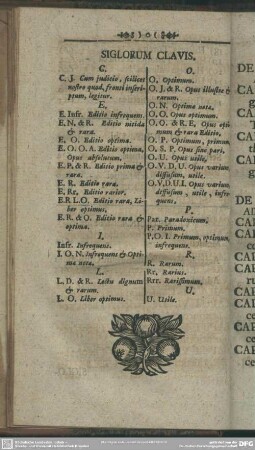 SIGLORUM CLAVIS.
C.
C. J. Cum judicio, scilicet
nostro quod, fronti inscri-
ptum, legitur.
E.
E. Infr. Editio infrequens.
E. N. & R. Editio nitida
& rara.
E. O. Editio optima.
E. O. O. A. Editio optima,
Opus absolutum.
E. P. & R. Editio prima &
rara.
E. R. Editio rara.
E. Rr. Editio rarior.
E.R L.O. Editio rara, Li-
ber optimus.
E. R. & O. Editio rara &
optima.
I.
Infr. Infrequens.
I. O. N. Infrequens & Opti-
mæ nota.
L.
L. D. & R. Lectu dignum
& rarum.
L. O. Liber optimus.
O.
O. Optimum.
O. J. & R. Opus illustre &
rarum.
O. N. Optima nota.
O. O. Opus optimum.
O. O. & R. E. Opus opti-
mum & rara Editio.
O. P. Optimum, primum.
O. S. P. Opus sine pari.
O. U. Opus utile.
O. V. D. U. Opus varium,
diffusum, utile.
O.V.D.U.I. Opus varium
diffusum, utile, infre-
quens.
P.
Par. Paræneticum.
P. Primum.
P.O. I. Primum, optimum
infrequens.
R.
R. Rarum.
Rr. Rarius.
Rrr. Rarissimum.
U.
U. Utile.
DE
CA
CA
DE
CA
CAP
CAP
CAP
CAP
CAP
DFG